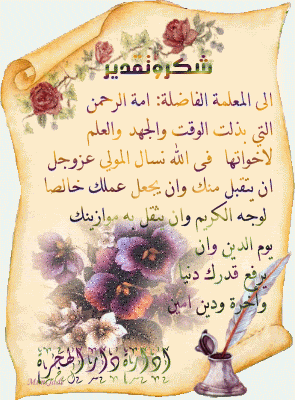 شكر وتقدير
الى المعلمة الفاضلة: امة الرحمن
التي بذلت الوقت والجهد والعلم
لاخواتها فى الله نسال المولي عزوجل
ان يتقبل منك وان يجعل عملك خالصا
لوجه الكريم وان يثقل به موازينك
يوم الدين وان
يرفع قدرك دنيا
وآخرة ودين امين
ادارة دار الهجرة